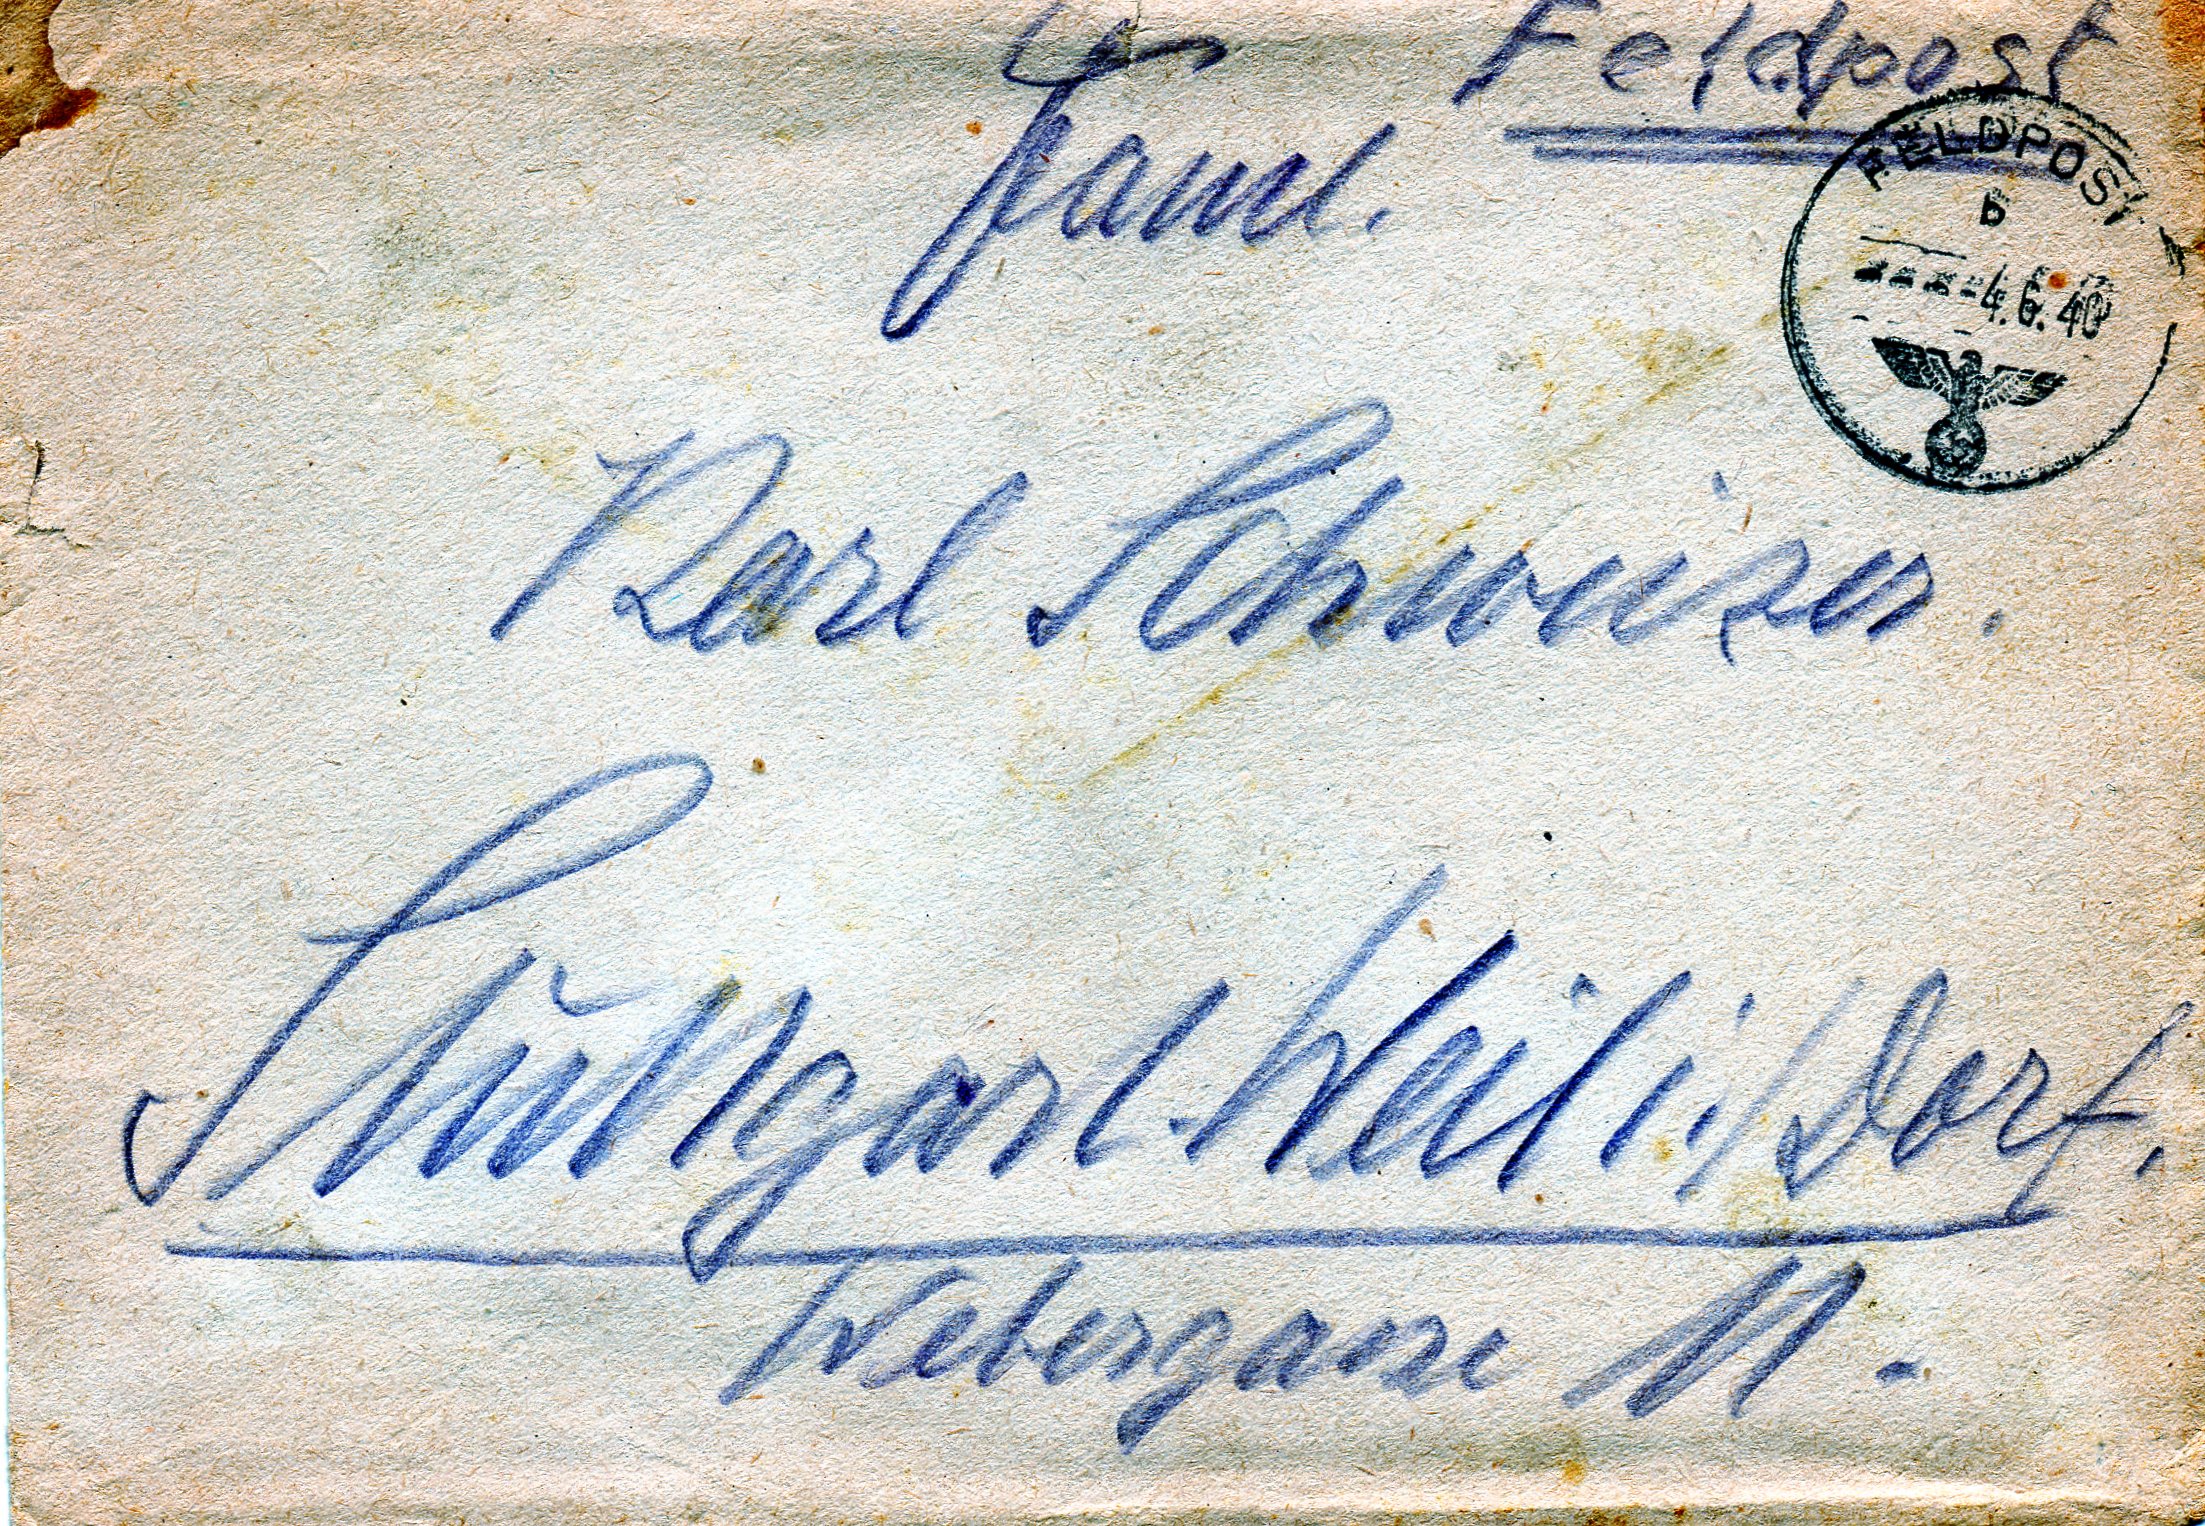 Feldpost
FELDPOST
b
-4.6.40
Faml.
Karl Schweizer.
Stuttgart-Weilimdorf.
Webergasse 11.